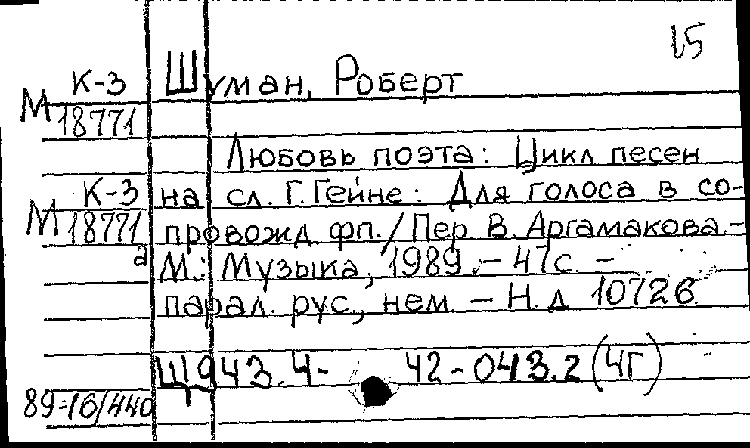 15
К-3 Шуман, Роберт
М 18771
Любовь поэта: Цикл песен
К-3 на сл. Г. Гейне: Для голоса в со-
М 18771 провожд. фп./Пер. В. Аргамакова.-
а М.: Музыка, 1989.- 47с. -
парал. рус., нем. - Н. д. 10726
Щ943.4- 42-043.2(4Г)
89-16/440